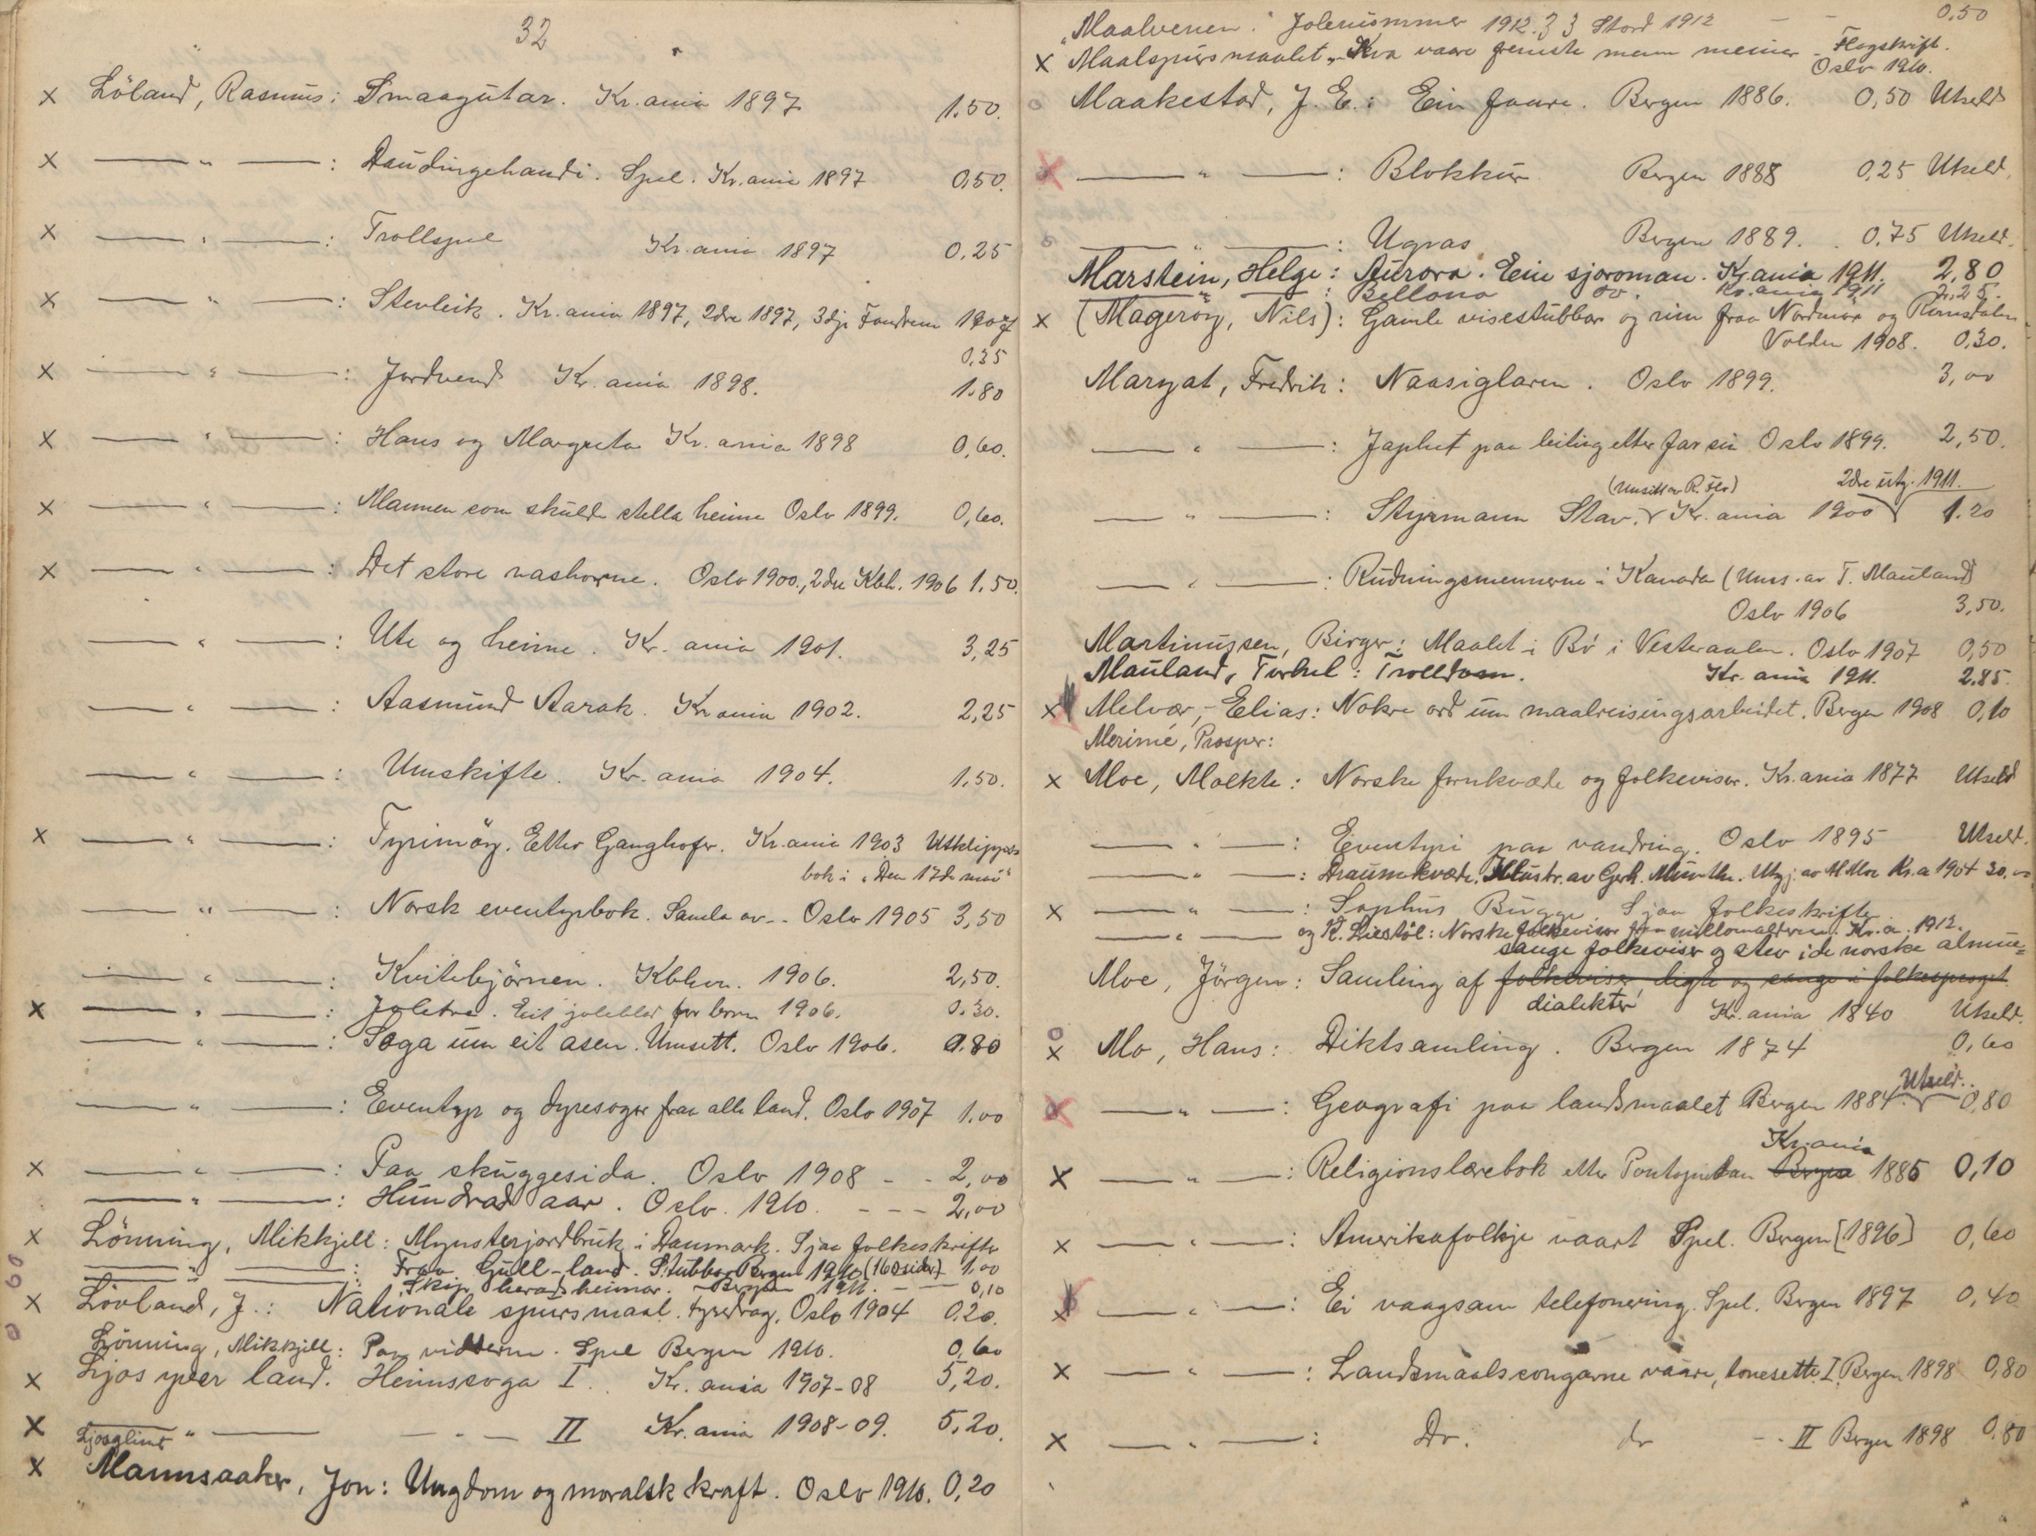 32
× Löland, Rasmus: Smaagutar. Kr.ania 1897 1.50.
× — " — : Daudingehandi. Spel. Kr.ania 1897 0,50.
× — " — : Trollspel Kr.ania 1897 0,25
× — " — : Stevleik. Kr.ania 1897, 2dre 1897, 3dje 1907
0,35
× — " — : Jordvend Kr.ania 1898. 1.80
× — " — : Hans og Margreta Kr.ania 1898 0,60.
× — " — : Mannen som skulde stella heime Oslo 1899. 0,60.
× — " — : Det store nashorne. Oslo 1900., 2dre Kbh. 1906 1,50.
— " — : Ute og heime. Kr.ania 1901. 3,25
— " — : Aasmund Aarak. Kr.ania 1902. 2,25
— " — : Umskifte. Kr.ania 1904. 1,50.
× — " — : Tyrimöy. Etter Ganghofer. Kr.ania 1903 Utklipps-
bok i "Den 17de mai"
— " — : Norsk eventyrbok. Samla av - - Oslo 1905 3,50
— " — : Kvitebjörnen. Kbhvn. 1906. 2,50.
× — " — : Joletre. Eit joleblad for born 1906. 0.30.
— " — : Soga um eit asen. Umsett. Oslo 1906. 0.80
— " — : Eventyr og dyresogor fraa alle land. Oslo 1907 1,00
× — " — : Paa skuggesida. Oslo 1908 - - 2,00
— " — : Hundrad aar. Oslo. 1910. - - - 2,00
× Lönning, Mikkjell: Mynsterjordbruk i Danmark. Sjaa folkeskrifter
— " — : Fraa Gull-land. Stubbar Bergen 1910 (160 sider) 1.00
Skip heradsheimar. Bergen 1911. - - 0,10
× Lövland, J.: Nationale spursmaal. Oslo 1904 0,20.
Lönning, Mikkjell: Paa vidderne. Spel Bergen 1910. 0,60
× Ljos yver land. Heimsoga I. Kr.ania 1907-08 5,20.
× — " — - " — II Kr.ania 1908-09. 5,20.
Ljosglimt
× Mannsaaker, Jon: Ungdom og moralsk kraft. Oslo 1910. 0,20
"Maalvenen". Jolenummer 1912. Stord 1912 - - 0,50
× Maalspursmaalet, Kva vaare fremste menn meiner - Flogskrift.
Oslo 1910.
o Maakestad, J. E.: Ein faare. Bergen 1886. 0,50 Utseld
× — " — : Blokkur Bergen 1888 0,25 Utseld.
o — " — : Ugras Bergen 1889. . 0,75 Utseld.
Marstein, Helge: Aurora. Ein sjoroman. Kr.ania 1911. 2,80
— " — : Bellona do. Kr.ania 1911 2,25.
× (Mageröy, Nils): Gamle visestubbar og rim fraa Nordmør og Romsdalen
Volden 1908. 0,30.
Maryat, Fredrik: Naasiglaren. Oslo 1899. 3,00
— " — : Japhet paa leiting etter far sin Oslo 1899. 2,50.
(Umsett av R. Flo) 2dre utg. 1911.
— " — : Styrmann Stav. Kr.ania 1900 1.20
— " — : Rudningsmennerne i Kanada (Ums. av T. Mauland)
Oslo 1906 3,50.
Martinussen, Birger: Maalet i Bö i Vesteraalen. Oslo 1907 0,50
Mauland, Torkel: Trolldom. Kr.ania 1911. 2.85.
× Melvær, Elias: Nokre ord um maalreisingsarbeidet. Bergen 1908 0,10
Merimé, Prosper:
× Moe, Moltke: Norske fornkvæde og folkevisor. Kr.ania 1877 Utseld
— " — : Eventyri paa vandring. Oslo 1895 Utseld.
— " — : Draumkvæde. Illustr. av Gerh. Munthe. Utgj. av M Moe Kr.a 1904 30,00
× — " — : Sophus Bugge. Sjaa folkeskrifter
— " — og K. Liestöl: Norske folkevisor fraa millomalderen. Kr.a. 1912.
sange folkeviser og stev i de norske almue=
Moe, Jörgen: Samling af folkeviser digte og sange i folkesproget
dialekter Kr.ania 1840 Utseld.
o × Mo, Hans: Diktsamling. Bergen 1874 0,60
Utseld.
× — " — : Geografi paa landsmaalet Bergen 1884. 0,80
Kr.ania
× — " — : Religionslærebok etter Pontopidan Bergen 1885 0,10
× — " — : Amerikafolkje vaart Spel. Bergen [1896] 0,60
× — " — : Ei vaagsam telefonering. Spel. Bergen 1897 0,40
× — " — : Landsmaalssongarne vaare, tonesette. I. Bergen 1898 0,80
× — " — : Do. do - - II Bergen 1898 0,80